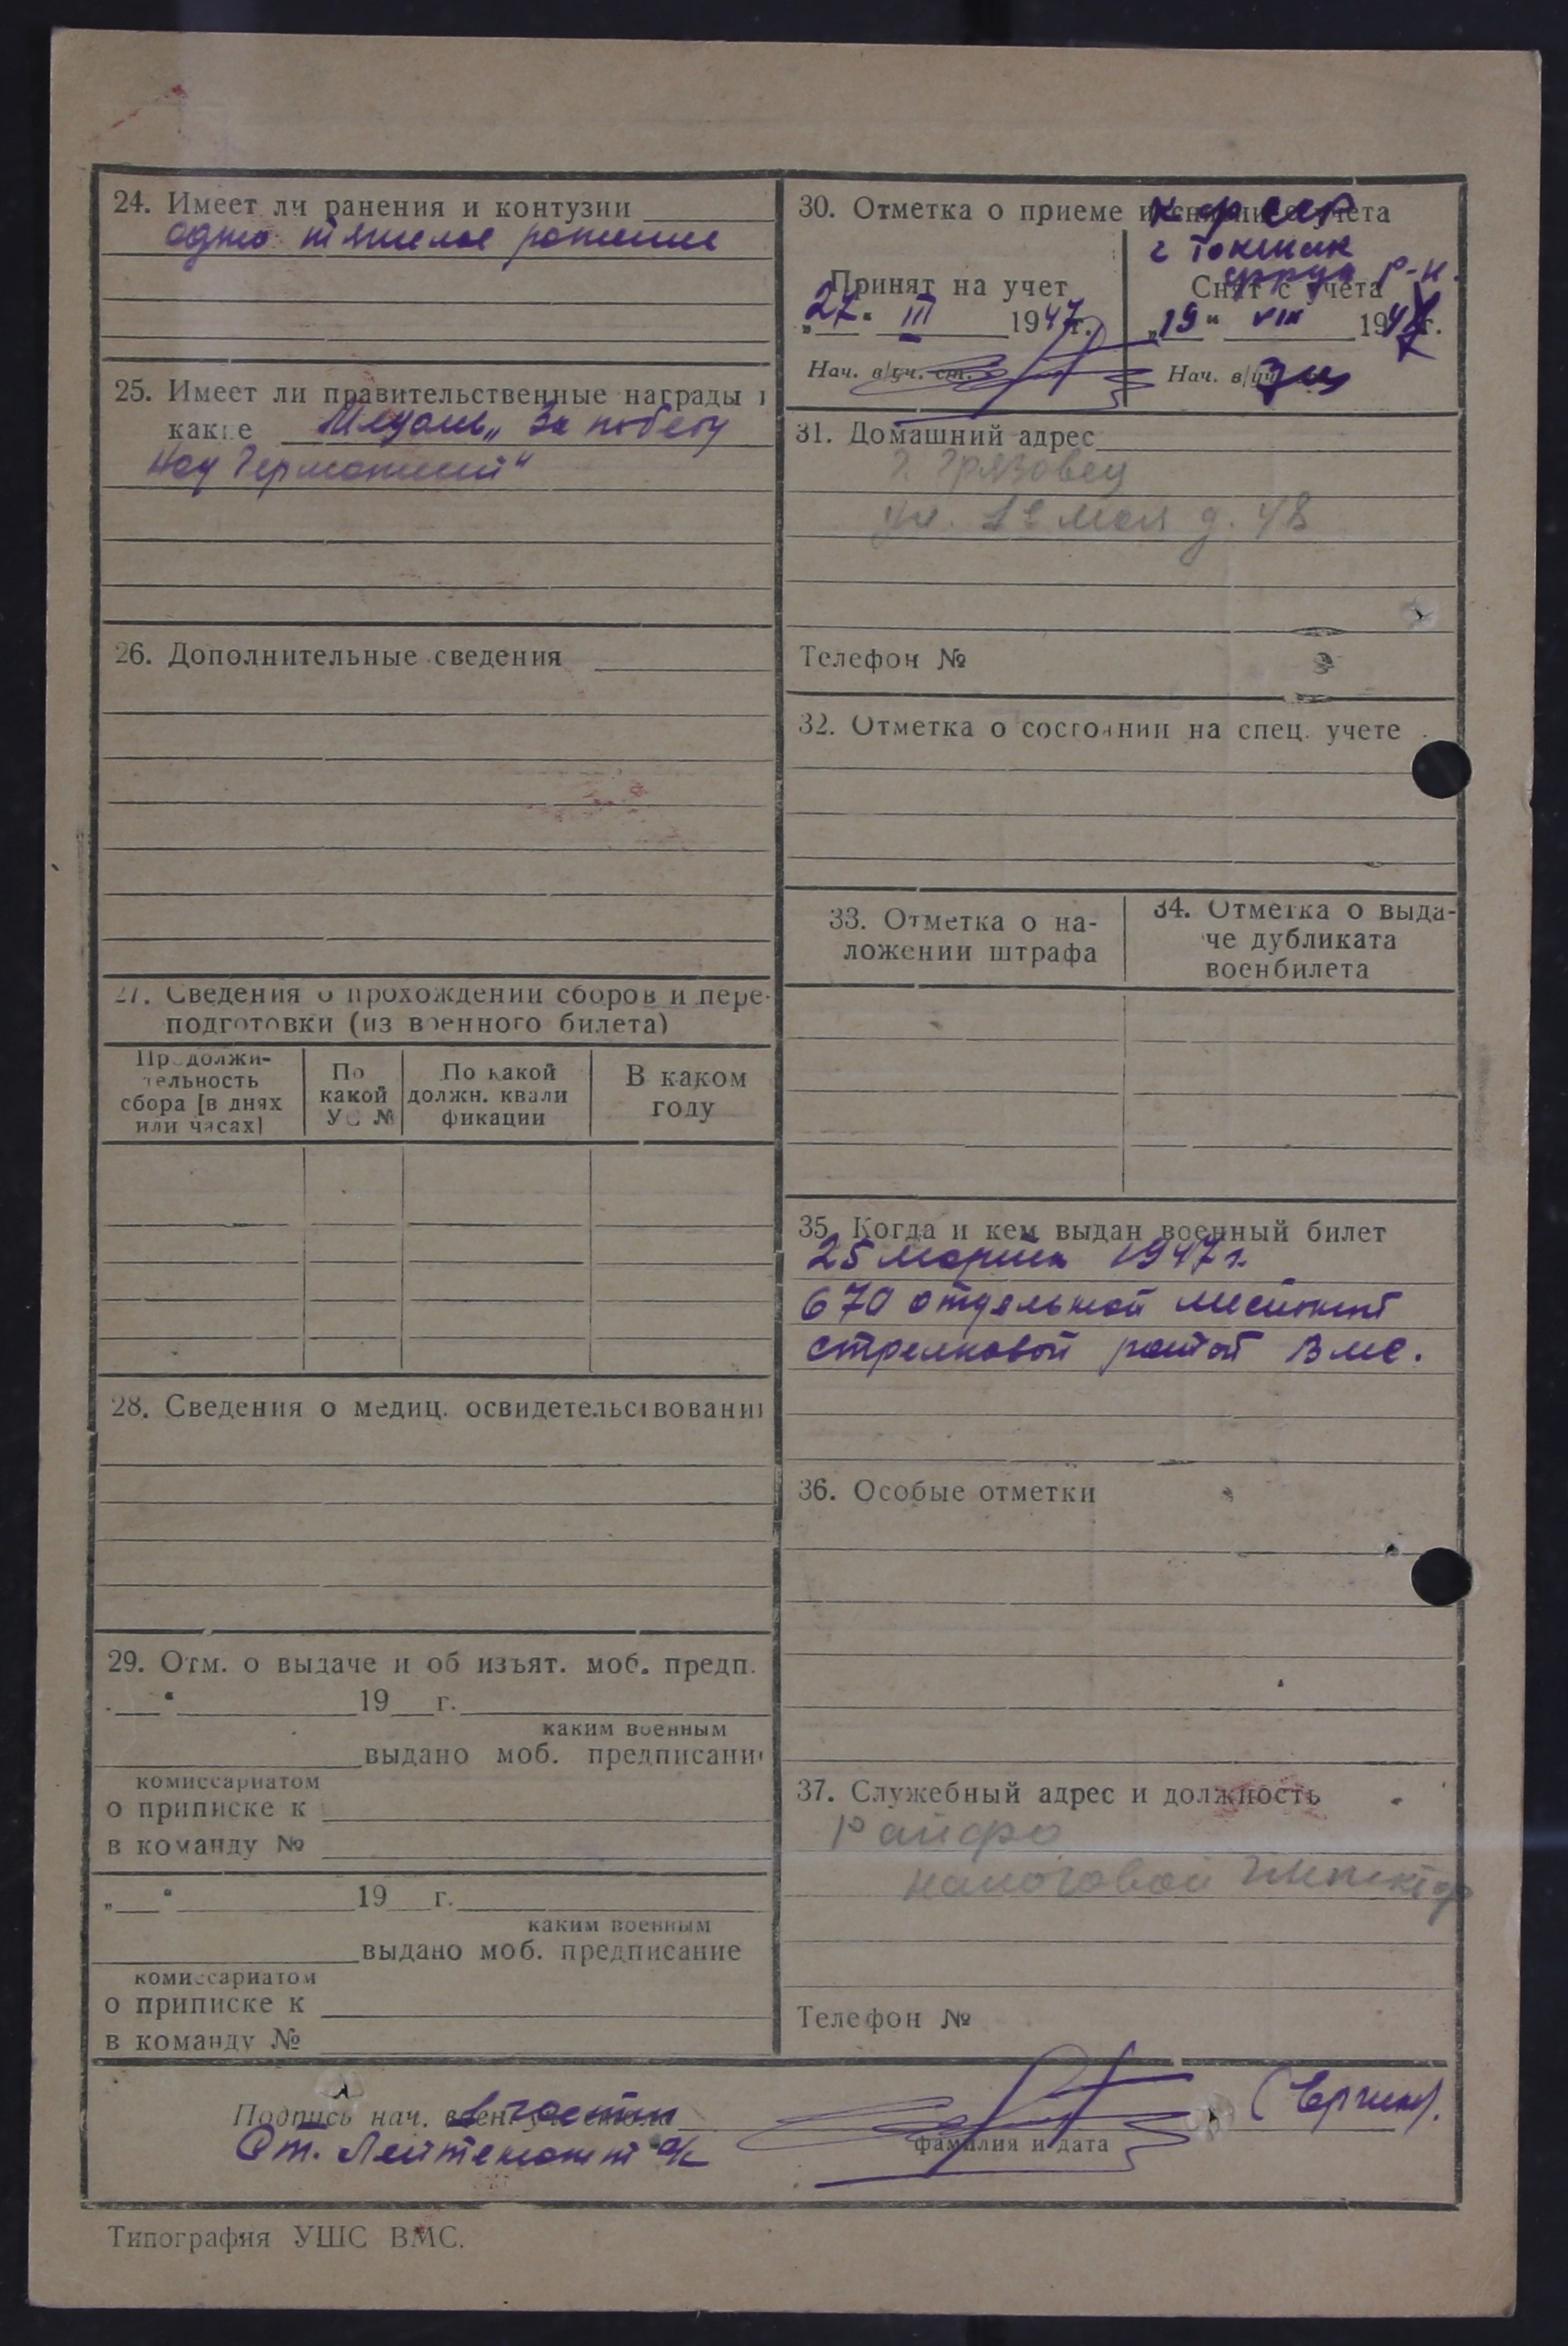 24. Имеет ли ранения и контузии
одно тяжелое ранение
25. Имеет ли правительственные награды и
какие Медаль „За победу
над Германией“
26. Дополнительные сведения
27. Сведения о прохождении сборов и пере-
подготовки (из военного билета)
Продолжи-
тельность
сбора [в днях
или часах]
По
какой
УС №
По какой
должн. квали
фикации
В каком
году
28. Сведения о медиц. освидетельствовании
29. Отм. о выдаче и об изъят. моб. предп.
„ “ 19 г.
каким военным
выдано моб. предписание
комиссариатом
о приписке к
в команду №
„ “ 19 г.
каким военным
выдано моб. предписание
комиссариатом
о приписке к
в команду №
30. Отметка о приеме и снятии с учета
г Токмак
р-н.
Принят на учет
„27“ III 1947г.
Нач. в/уч. ст.
Снят с учета
„19“ VIII 194 г.
Нач. в/уч
31. Домашний адрес
г. Грязовец
ул. 1е мая д. 48
Телефон №
32. Отметка о состоянии на спец. учете
33. Отметка о на-
ложении штрафа
34. Отметка о выда-
че дубликата
военбилета
35. Когда и кем выдан военный билет
25 марта 1947 г.
670 отдельной местной
стрелковой ротой ВМС.
36. Особые отметки
37. Служебный адрес и должность
Райфо
налоговой инспектор
Телефон №
Подпись нач. части
Ст. Лейтенант а/с
фамилия и дата
Типография УШС ВМС.